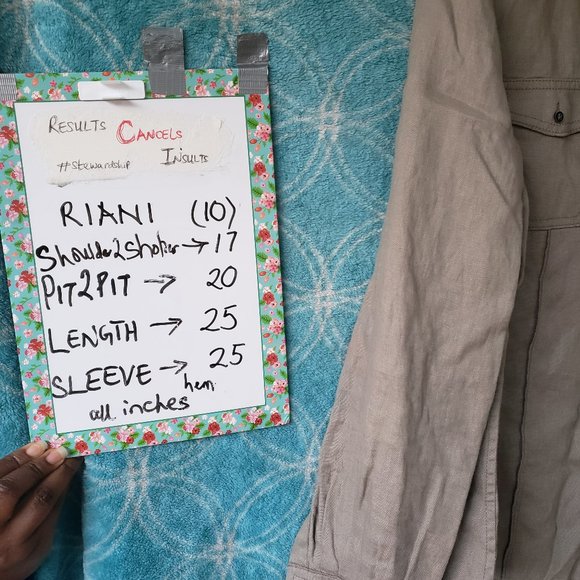 RESULTS CANCELS
#stewardship INSULTS
RIANI (10)
Shoulder2Sholder → 17
PIT2PIT → 20
LENGTH → 25
SLEEVE → 25
hem
all inches